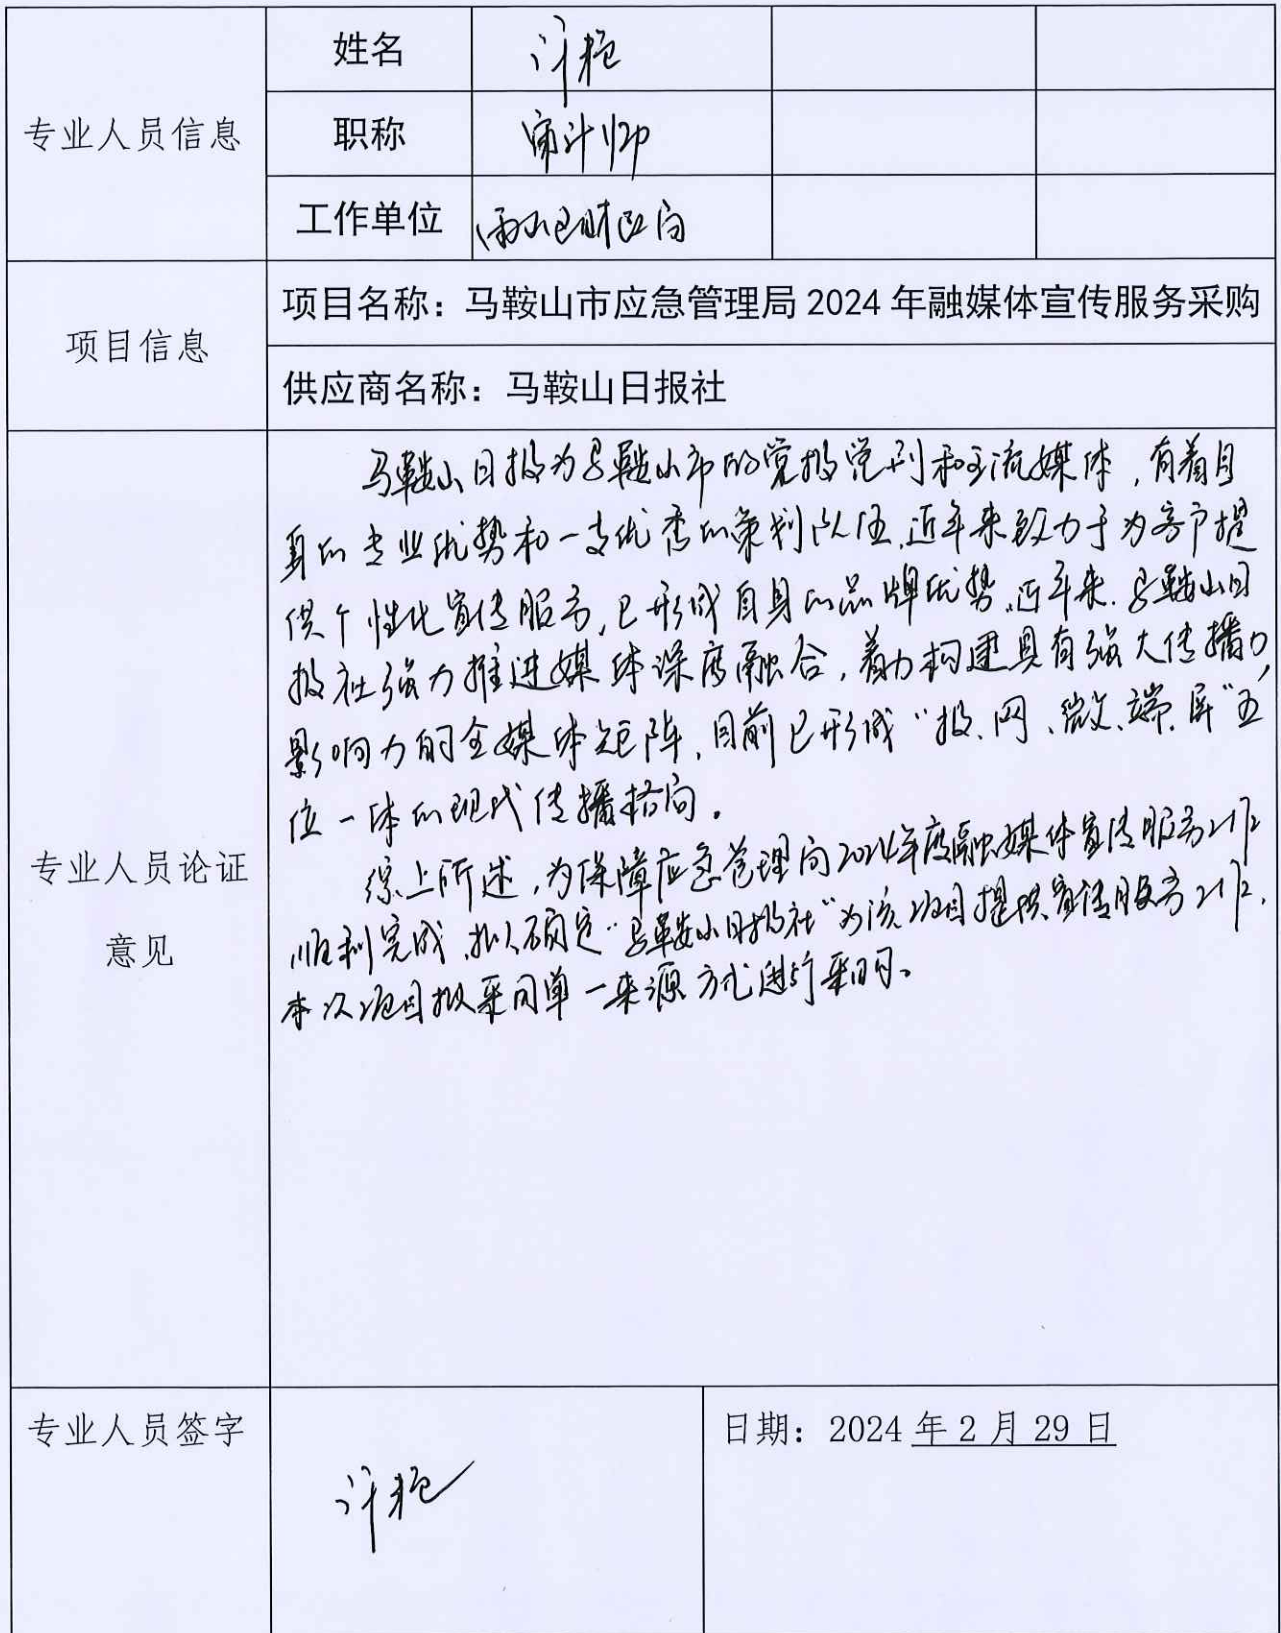 专业人员信息
姓名 许艳
职称 审计师
工作单位 雨山区财政局
项目信息
项目名称：马鞍山市应急管理局 2024 年融媒体宣传服务采购
供应商名称：马鞍山日报社
专业人员论证
意见
马鞍山日报为马鞍山市的党报党刊和主流媒体，有着自
身的专业优势和一支优秀的策划队伍，近年来致力于为客户提
供个性化宣传服务，已形成自身的品牌优势，近年来，马鞍山日
报社强力推进媒体深度融合，着力构建具有强大传播力，
影响力的全媒体矩阵，目前已形成“报、网、微、端、屏”五
位一体的现代传播格局。
综上所述，为保障应急管理局2024年度融媒体宣传服务工作
顺利完成，拟确定“马鞍山日报社”为该项目提供宣传服务工作，
本次项目拟采用单一来源方式进行采购。
专业人员签字
日期：2024 年 2 月 29 日